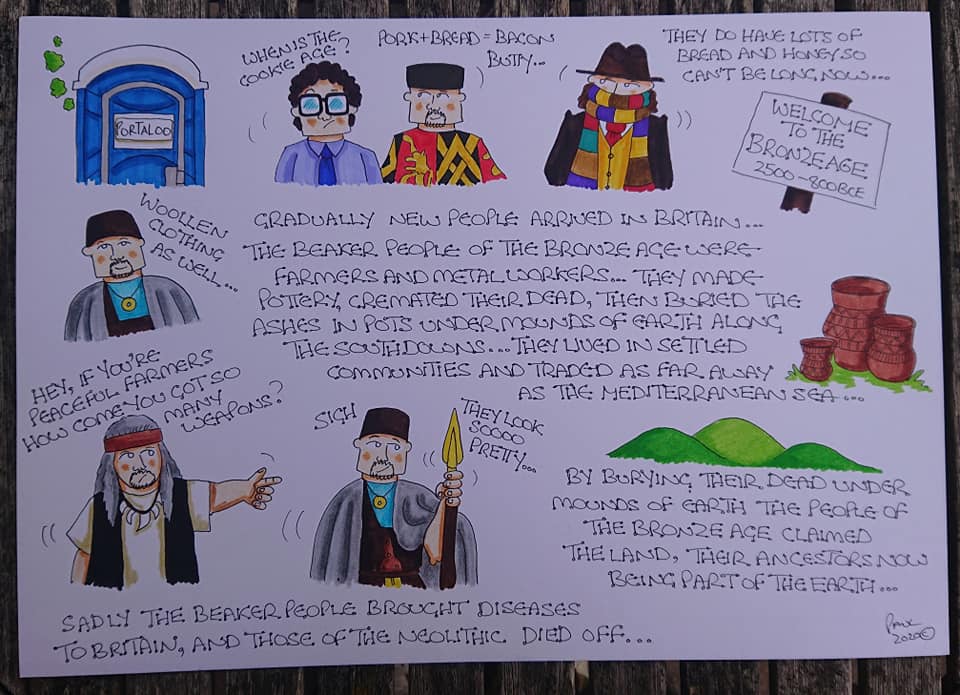 PORTALOO
WHEN IS THE
COOKIE AGE?
PORK + BREAD = BACON
BUTTY...
THEY DO HAVE LOTS OF
BREAD AND HONEY SO
CAN'T BE LONG NOW...
WELCOME
TO THE
BRONZE AGE
2500-800BCE
WOOLLEN
CLOTHING
AS WELL...
GRADUALLY NEW PEOPLE ARRIVED IN BRITAIN...
THE BEAKER PEOPLE OF THE BRONZE AGE WERE
FARMERS AND METAL WORKERS... THEY MADE
POTTERY, CREMATED THEIR DEAD, THEN BURIED THE
ASHES IN POTS UNDER MOUNDS OF EARTH ALONG
THE SOUTH DOWNS... THEY LIVED IN SETTLED
COMMUNITIES AND TRADED AS FAR AWAY
AS THE MEDITERRANEAN SEA...
HEY, IF YOU'RE
PEACEFUL FARMERS
HOW COME YOU GOT SO
MANY
WEAPONS?
SIGH
THEY LOOK
SOOOO
PRETTY...
BY BURYING THEIR DEAD UNDER
MOUNDS OF EARTH THE PEOPLE OF
THE BRONZE AGE CLAIMED
THE LAND, THEIR ANCESTORS NOW
BEING PART OF THE EARTH...
SADLY THE BEAKER PEOPLE BROUGHT DISEASES
TO BRITAIN, AND THOSE OF THE NEOLITHIC DIED OFF...
2020©